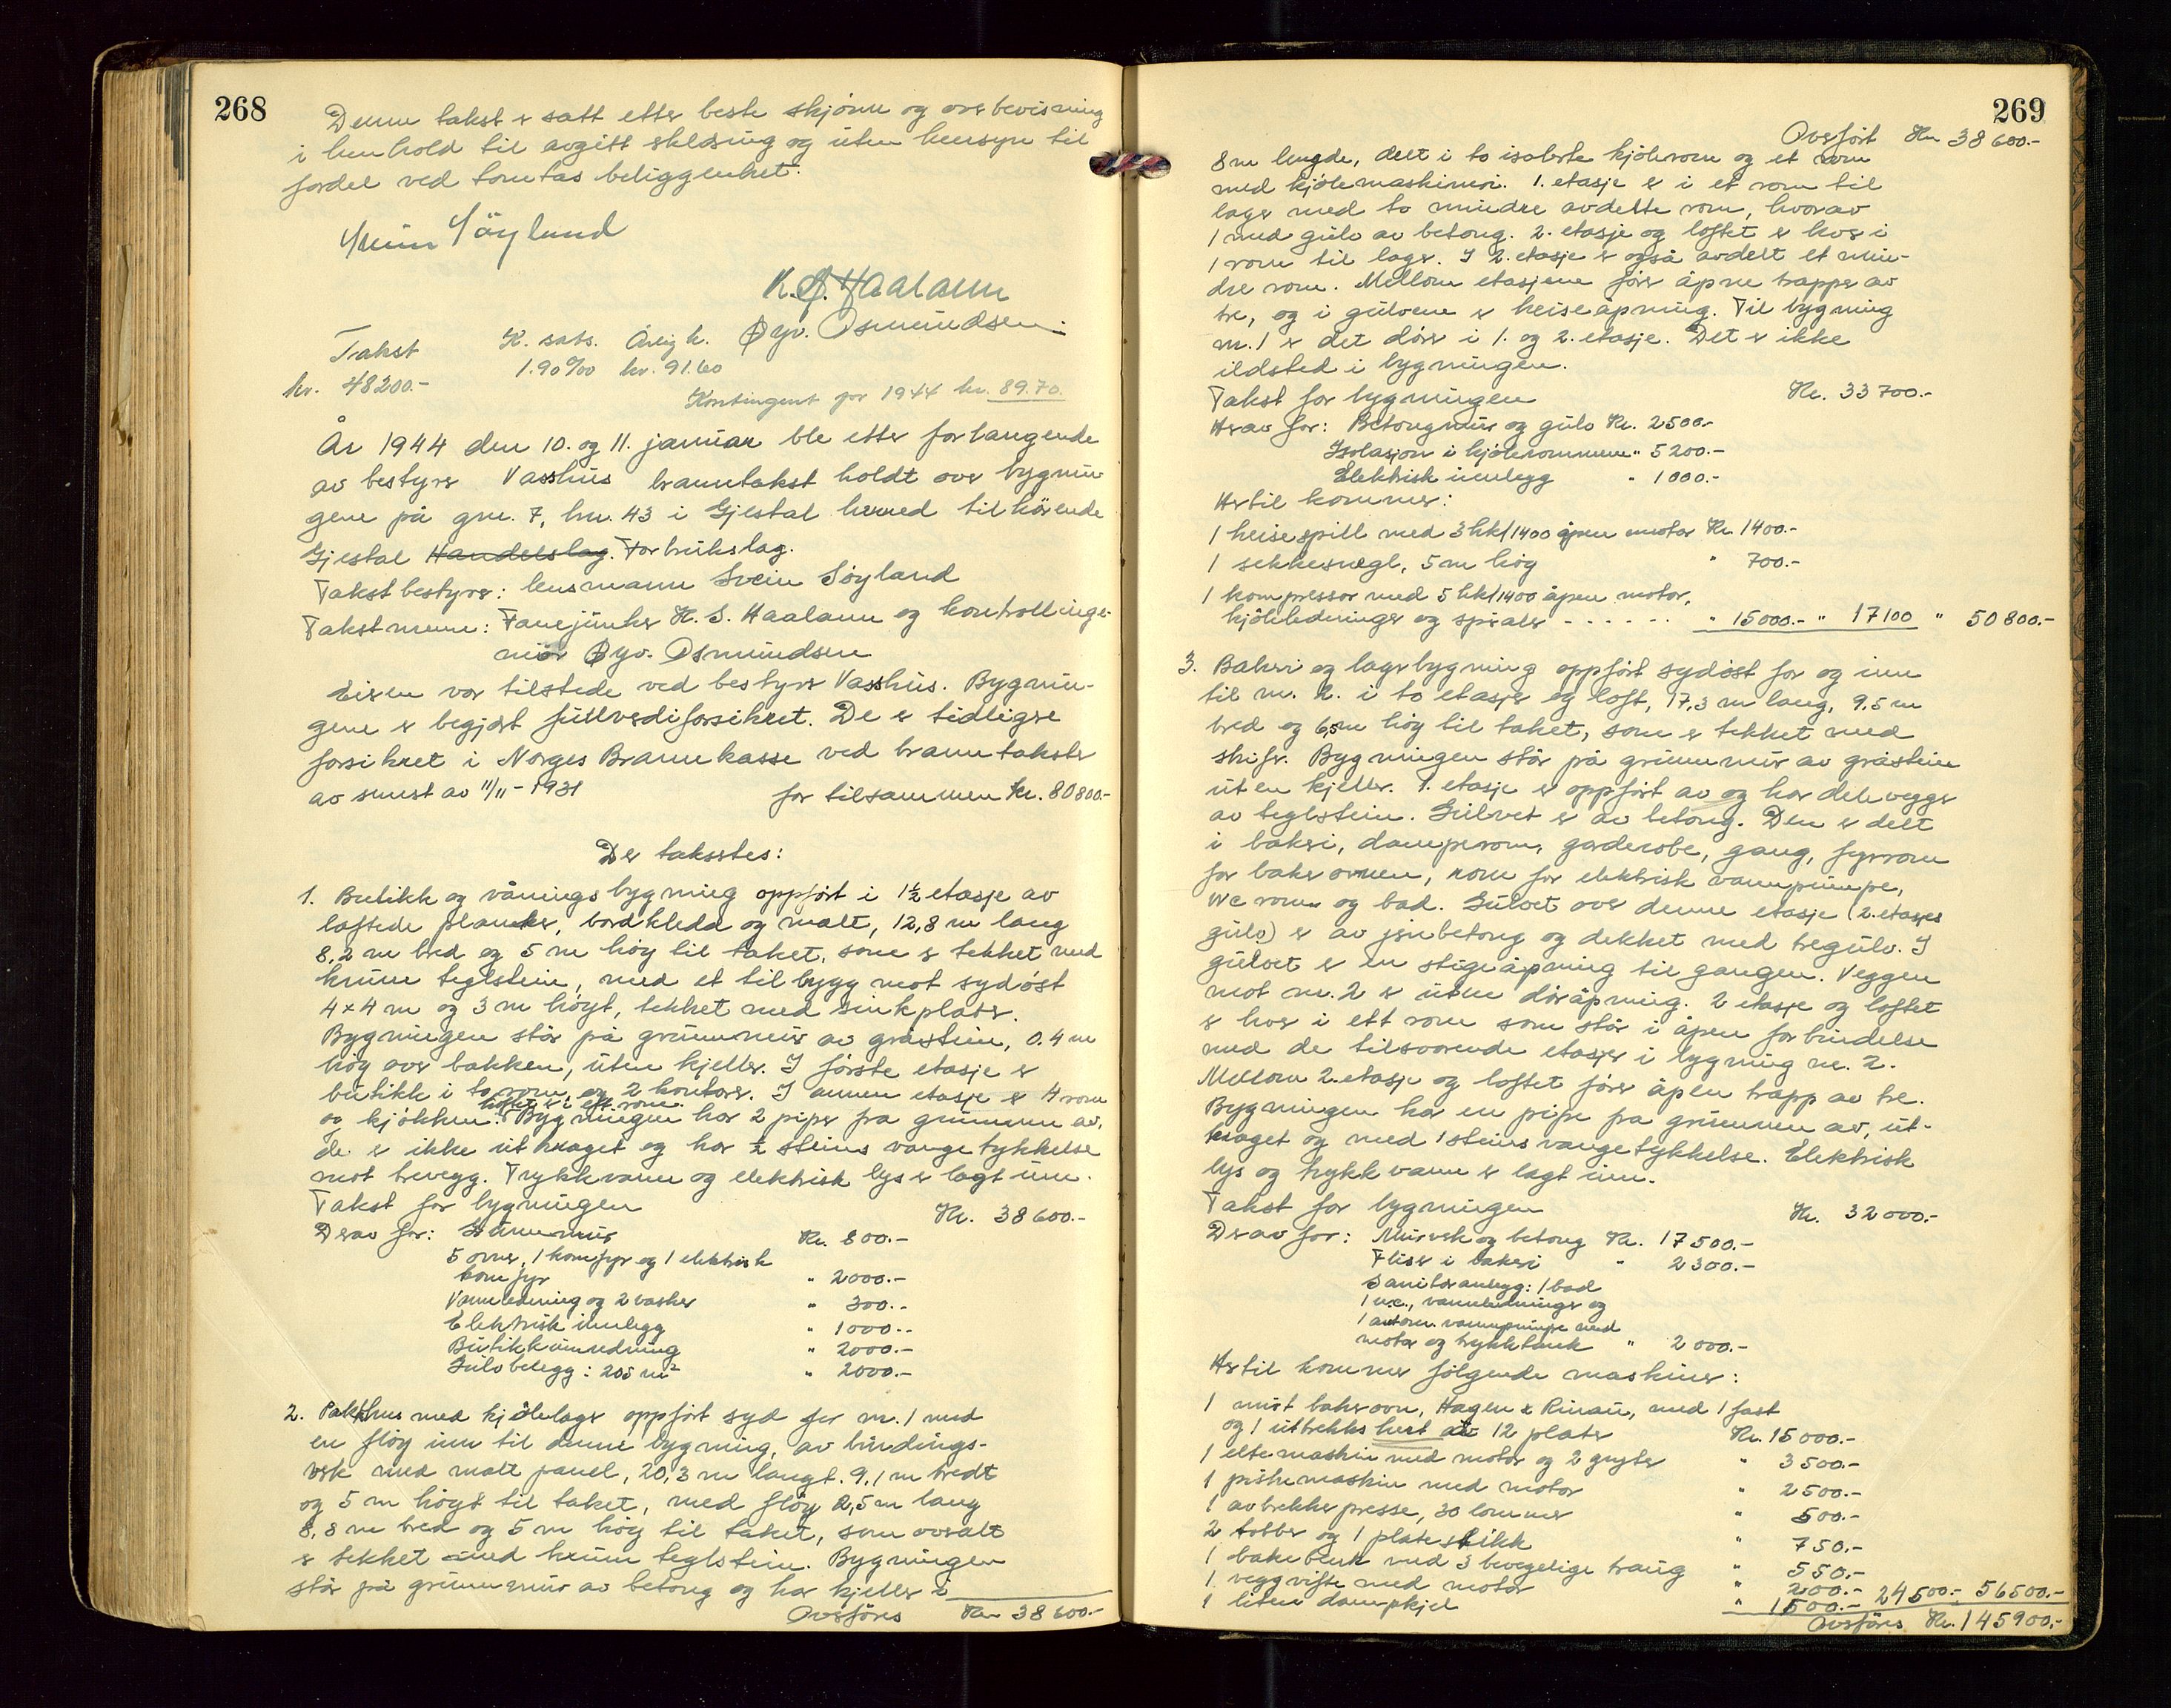 268
Denne takst er satt etter beste skjønn og overbevisning
i henhold til avgitt erklæring og uten hensyn til
fordel ved tomtas beliggenhet.
Svein Söyland
K. S. Haalann
Takst K. sats. Årlig k. Øyv. Osmundsen.
kr. 48200.- 1.90‰ kr. 91.60
Kontingent for 1944 kr. 89.70.
År 1944 den 10. og 11. januar ble etter forlangende
av bestyrer Vasshus branntakst holdt over bygnin-
gene på gnr. 7, bnr. 43 i Gjestal herred tilhörende
Gjestal Handelslag. Forbrukslag.
Takstbestyrer: lensmann Svein Söyland
Takstmenn: Fanejunker K. S. Haalann og kontrollinge-
niör Øyv. Osmundsen
Eieren var tilstede ved bestyrer Vasshus. Bygnin-
gene er begjært fullverdiforsikret. De er tidligere
forsikret i Norges Brannkasse ved branntakster
av senest av 11/11-1931 for tilsammen kr. 80800.-
Der takseres:
1. Butikk og våningsbygning oppført i 1½ etasje av
laftede planker, bordkledd og malt, 12,8 m lang
8,2 m bred og 5 m høg til taket, som er tekket med
krum teglstein, med et tilbygg mot sydøst
4 x 4 m og 3 m høyt, tekket med sinkplater.
Bygningen står på grunnmur av gråstein, 0.4 m
høg over bakken, uten kjeller. I første etasje er
butikk i to rom, og 2 kontorer. I annen etasje er 4 rom
loftet er i ett rom.
og kjøkken. Bygningen har 2 piper fra grunnen av,
de er ikke utkraget og har ½ steins vangetykkelse
mot trevegg. Trykkvann og elektrisk lys er lagt inn.
Takst for bygningen Kr. 38600.-
Derav for: Grunnmur Kr. 800.-
5 ovner, 1 komfyr og 1 elektrisk
komfyr " 2000.-
Vannledning og 2 vasker " 300.-
Elektrisk innlegg " 1000.-
Butikkinnredning " 2000.-
Gulvbelegg: 205 m² " 2000.-
2. Pakkhus med kjølelager oppført syd for nr. 1 med
en fløy inn til denne bygning, av bindings-
verk med malt panel, 20,3 m langt. 9,1 m bredt
og 5 m høyt til taket, med fløy 2,5 m lang
8,8 m bred og 5 m høg til taket, som overalt
er tekket med krum teglstein. Bygningen
står på grunnmur av betong og har kjeller i
Overføres Kr. 38600.-
269
Overført Kr. 38600.-
8 m lengde, delt i to isolerte kjølerom og et rom
med kjølemaskineri. 1. etasje er i et rom til
lager med to mindre avdelte rom, hvorav
1 med gulv av betong. 2. etasje og loftet er hver i
1 rom til lager. I 2. etasje er også avdelt et min-
dre rom. Mellom etasjene fører åpne trapper av
tre, og i gulvene er heiseåpning. Til bygning
nr. 1 er det dører i 1. og 2. etasje. Det er ikke
ildsted i bygningen.
Takst for bygningen Kr. 33700.-
Herav for: Betongmur og gulv Kr. 2500.-
Isolasjon i kjølerommene " 5200.-
Elektrisk innlegg " 1000.-
Hertil kommer:
1 heisespill med 3 hk/1400 åpen motor Kr. 1400.-
1 sekkesnegl, 5 m høg " 700.-
1 kompressor med 5 hk/1400 åpen motor,
kjøleledninger og spiraler - - - - - - " 15000.- " 17100 " 50800.-
3. Bakeri og lagerbygning oppført sydøst for og inn
til nr. 2. i to etasjer og loft, 17,3 m lang, 9,5 m
bred og 6,5 m høy til taket, som er tekket med
skifer. Bygningen står på grunnmur av gråstein
uten kjeller. 1. etasje er oppført av og har delevegger
av teglstein. Gulvet er av betong. Den er delt
i bakeri, damperom, garderobe, gang, fyrrom
for bakerovnen, rom for elektrisk vannpumpe,
wc rom og bad. Gulvet over denne etasje (2. etasjes
gulv) er av jernbetong og dekket med tregulv. I
gulvet er en stigeåpning til gangen. Veggen
mot nr. 2 er uten døråpning. 2 etasje og loftet
er hver i ett rom som står i åpen forbindelse
med de tilsvarende etasjer i bygning nr. 2.
Mellom 2. etasje og loftet fører åpen trapp av tre.
Bygningen har en pipe fra grunnen av, ut-
kraget og med 1 steins vangetykkelse. Elektrisk
lys og trykkvann er lagt inn.
Takst for bygningen Kr. 32000.-
Derav for: Murverk og betong Kr. 17500.-
Fliser i bakeri " 2300.-
Sanitæranlegg: 1 bad
1 w.c., vannledninger og
1 autom. vannpumpe med
motor og trykktank " 2000.-
Hertil kommer følgende maskiner:
1 murt bakerovn, Hagen & Rinau, med 1 fast
og 1 uttrekks hert av 12 plater Kr. 15000.-
1 eltemaskin med motor og 2 gryter " 3500.-
1 piskemaskin med motor " 2500.-
1 avtrekkerpresse, 30 lommer " 500.-
2 tobber og 1 platestikk " 750.-
1 bakebenk med 3 bevegelige traug " 550.-
1 veggvifte med motor " 200.- 24500.- 56500.-
1 liten dampkjel " 1500.-
Overføres Kr. 145900.-